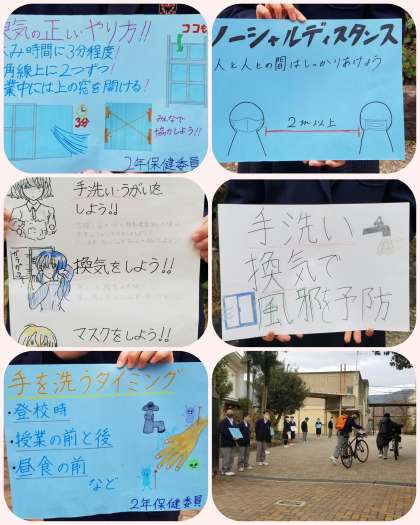 換気の正しいやり方!!
ココも
休み時間に3分程度!
対角線上に2つずつ!
授業中には上の窓を開ける!
3分
みんなで
協力しよう!!
2年保健委員
ソーシャルディスタンス
人と人との間はしっかりあけよう
2m以上
手洗い・うがいを
しよう!!
換気をしよう!!
マスクをしよう!!
手洗い
換気で
風邪を予防
手を洗うタイミング
・登校時
・授業の前と後
・昼食の前
など
2年保健委員